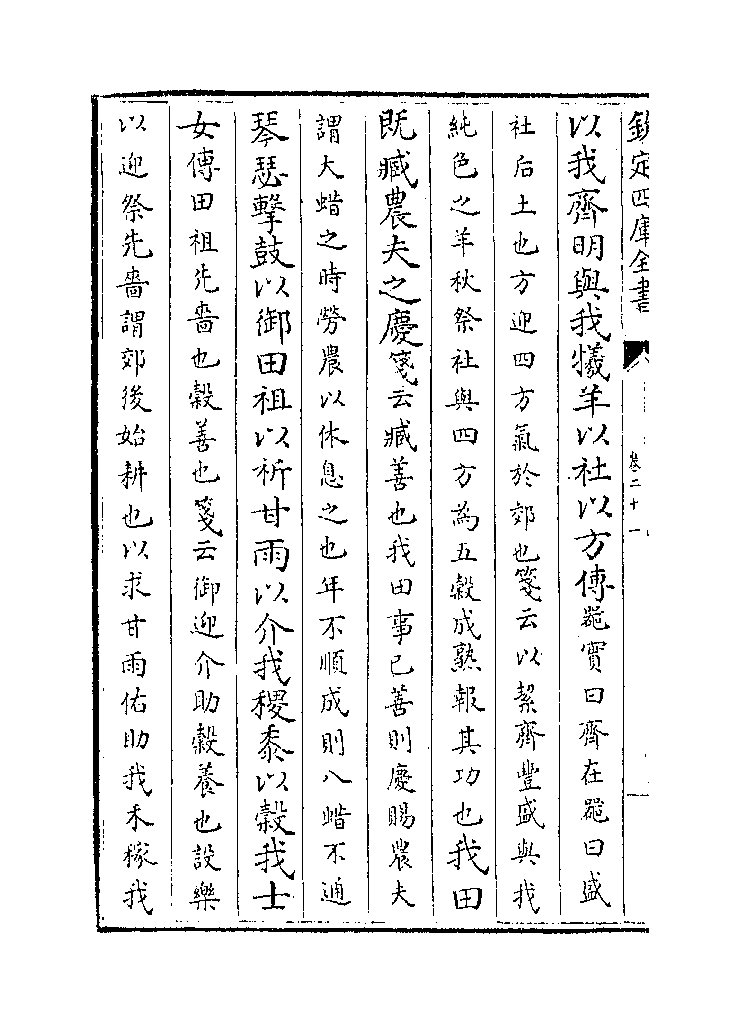 欽定四庫全書 卷二十一
以我齊明與我犧羊以社以方傳器實曰齊在器曰盛
社后土也方迎四方氣於郊也箋云以絜齊豐盛與我
純色之羊秋祭社與四方為五穀成熟報其功也我田
既臧農夫之慶箋云臧善也我田事已善則慶賜農夫
謂大蜡之時勞農以休息之也年不順成則八蜡不通
琴瑟擊鼓以御田祖以祈甘雨以介我稷黍以穀我士
女傳田祖先嗇也穀善也箋云御迎介助穀養也設樂
以迎祭先嗇謂郊後始耕也以求甘雨佑助我禾稼我